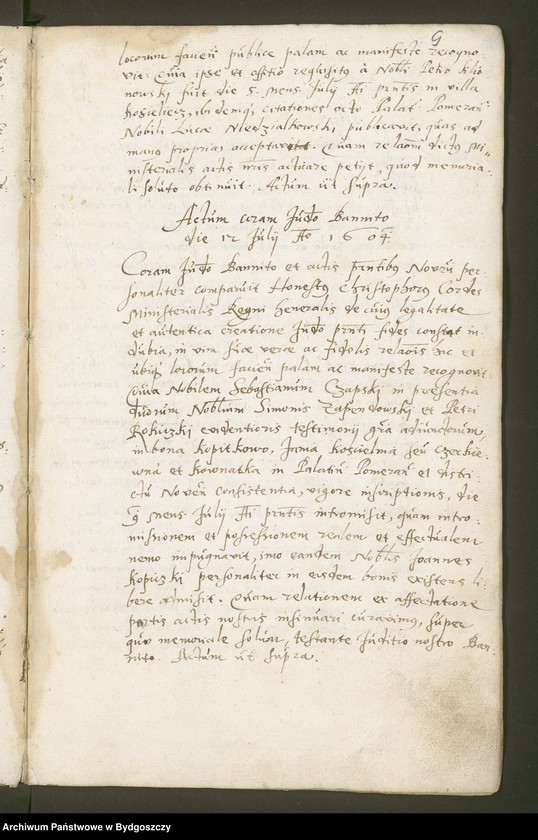 9
locorum facien publice palam ac manifeste recogno-
vit. Quia ipse et offitio requisitq à Nobli Petro
nowski fuit die 5. mens July Ai pntis in villa
Koscielecz, ibidemq citationes octo Palat Pomeran
Nobili Lucae Niedzialkowski publicavit, quas ad
manq proprias acceptavit. Quam relaoem dictq Mi-
nisterialis actis nris acticare petijt, quod memoria-
li soluto obtinuit. Actum ut supra.
Actum coram Judo Bannito
die 12 July Ao 1604.
Coram Judo Bannito et actis pntibq Noven per-
sonaliter comparuit Honestq Christophorq Cordes
Ministerialis Regni Generalis de cuiq legalitate
et autentica creatione Judo pnti fides constat in-
dubia, in vim suae verae ac fidelis relaois hic et
ubiq locorum facien palam ac manifeste recognovit
Quia Nobilem Sebastianum Czapski in praesentia
duorum Noblium Simonis Zapendowski et Petri
Rokiczki evidentioris testimonij gra adiunctorum,
in bona Kopitkowo, Jania Koscielna seu Czerkie-
wna et Kownatka in Palatu Pomeran et distri-
ctu Noven consistentia, vigore inscriptionis, die
9 mens July Ai pntis intromisit, quam intro-
missionem et possessionem realem et effectualem
nemo impugnavit, imo eandem Noblis Joannes
Kopiczki personaliter in eisdem bonis existens li-
bere admisit. Quam relationem ex affectatione
partis actis nostris insinuari curavimq, super
quo memoriale solum, testante Juditio nostro Ban-
nito. Actum ut supra.
Archiwum Państwowe w Bydgoszczy